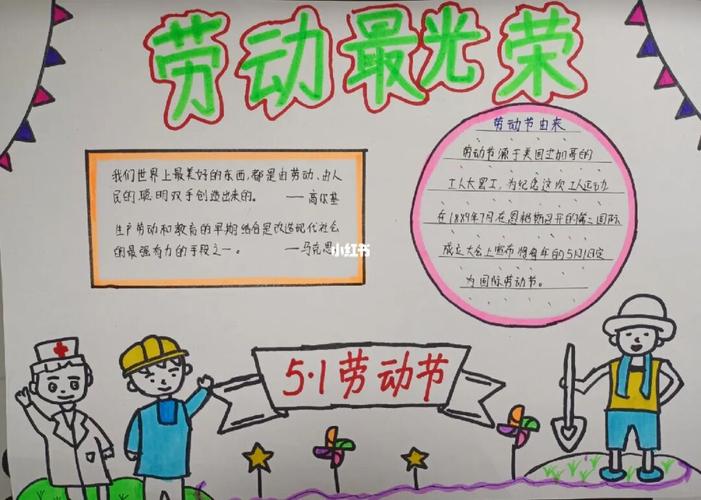 劳动最光荣
我们世界上最美好的东西,都是由劳动、由人
民的聪明双手创造出来的。 ——高尔基
生产劳动和教育的早期结合是改造现代社会
的最强有力的手段之一。 ——马克思
小红书
劳动节由来
劳动节源于美国芝加哥的
工人大罢工,为纪念这次工人运动
在1889年7月在恩格斯召开的第二国际
成立大会上宣布将每年的5月1日定
为国际劳动节。
5·1劳动节